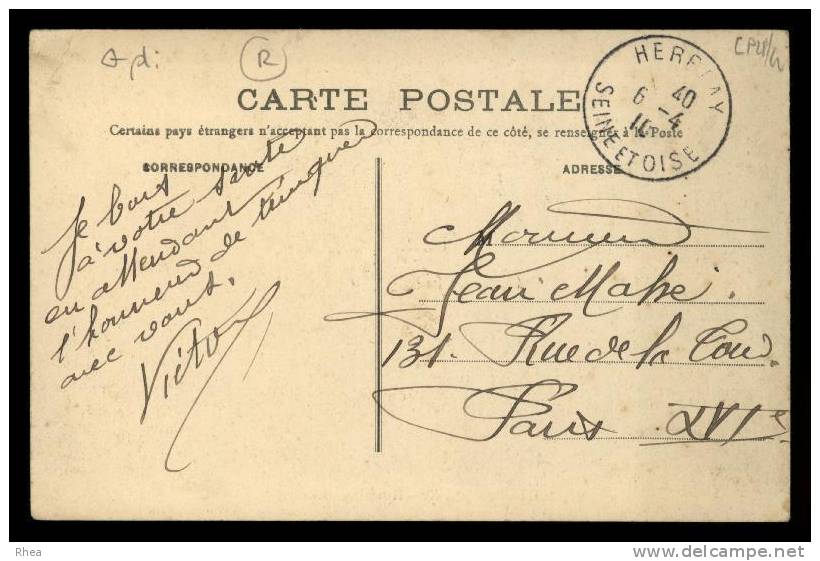 A pdi
R
CPU/W
HERBLAY
6 40
-4
SEINE ET OISE
CARTE POSTALE
Certains pays étrangers n'acceptant pas la correspondance de ce côté, se renseigner à la Poste
CORRESPONDANCE
ADRESSE
Je bois
à votre santé
en attendant
l'honneur de trinquer
avec vous.
Victor
Monsieur
Jean Mahé.
131. Rue de la Tour.
Paris XVIe
Rhea
http://rhea.delcampe.net